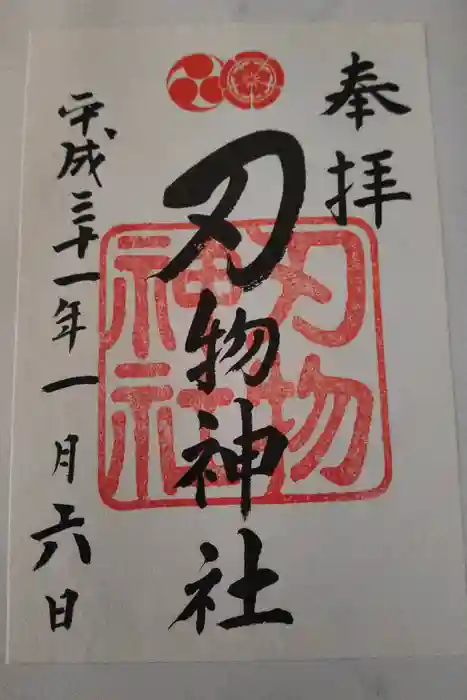 奉拝
刃物神社
刃物
神社
平成三十一年一月六日